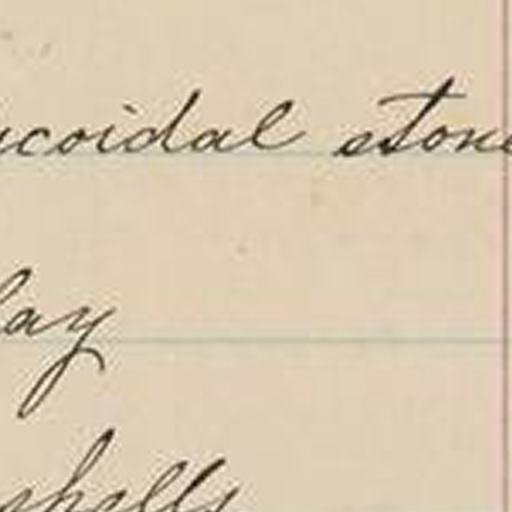 ucoidal stone
lay
shells